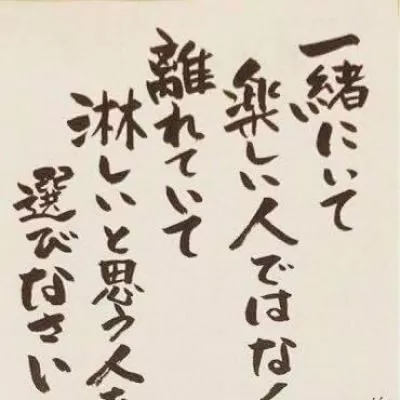 一緒にいて
楽しい人ではなく
離れていて
淋しいと思う人を
選びなさい